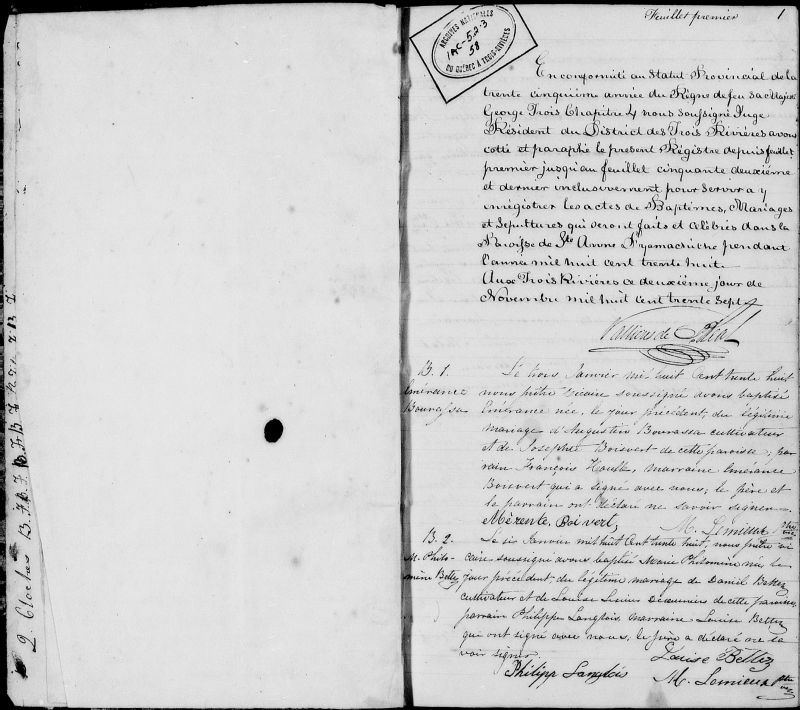 Feuillet premier 1
ARCHIVES NATIONALES
58
DU QUÉBEC À TROIS-RIVIÈRES
En conformité au Statut Provincial de la
trente cinquième année du Règne de feu sa Majesté
George Trois Chapitre 4 nous soussigné Juge
Résident du District des Trois Rivières avons
cotté et paraphé le present Régistre depuis feuillet
premier jusqu'au feuillet cinquante deuxième
et dernier inclusivement pour servir a y
enrégistrer les actes de Baptêmes, Mariages
et Sepultures qui seront faits et célébrés dans la
Paroisse de Ste Anne d'Yamachiche pendant
l'année mil huit cent trente huit.
Aux Trois Rivières ce deuxième jour de
Novembre mil huit cent trente sept
Vallières de St Réal
B. 1.
Emérance
Bourassa
Le trois Janvier mil huit cent trente huit
nous prêtre vicaire soussigné avons baptisé
Emérance née, le jour précédent, du légitime
mariage d'Augustin Bourassa cultivateur
et de Josephte Boisvert de cette paroisse; par-
rain François marraine Emerance
Boisvert qui a signé avec nous; le père et
le parrain ont déclaré ne savoir signer.
Mérente Boivert, M. Lemieux ptre
B. 2.
M. Philo-
mène Bettez
Le six Janvier mil huit cent trente huit, nous prêtre vi-
caire soussigné avons baptisé Marie Philomène née le
jour précédent du légitime mariage de Daniel Bettez
cultivateur et de Louise de cette paroisse,
parrain Philippe Langlois, marraine Louise Bettez
qui ont signé avec nous, le père a déclaré ne sa
voir signer.
Louise Bettez
Philipp Langlois M. Lemieux ptre